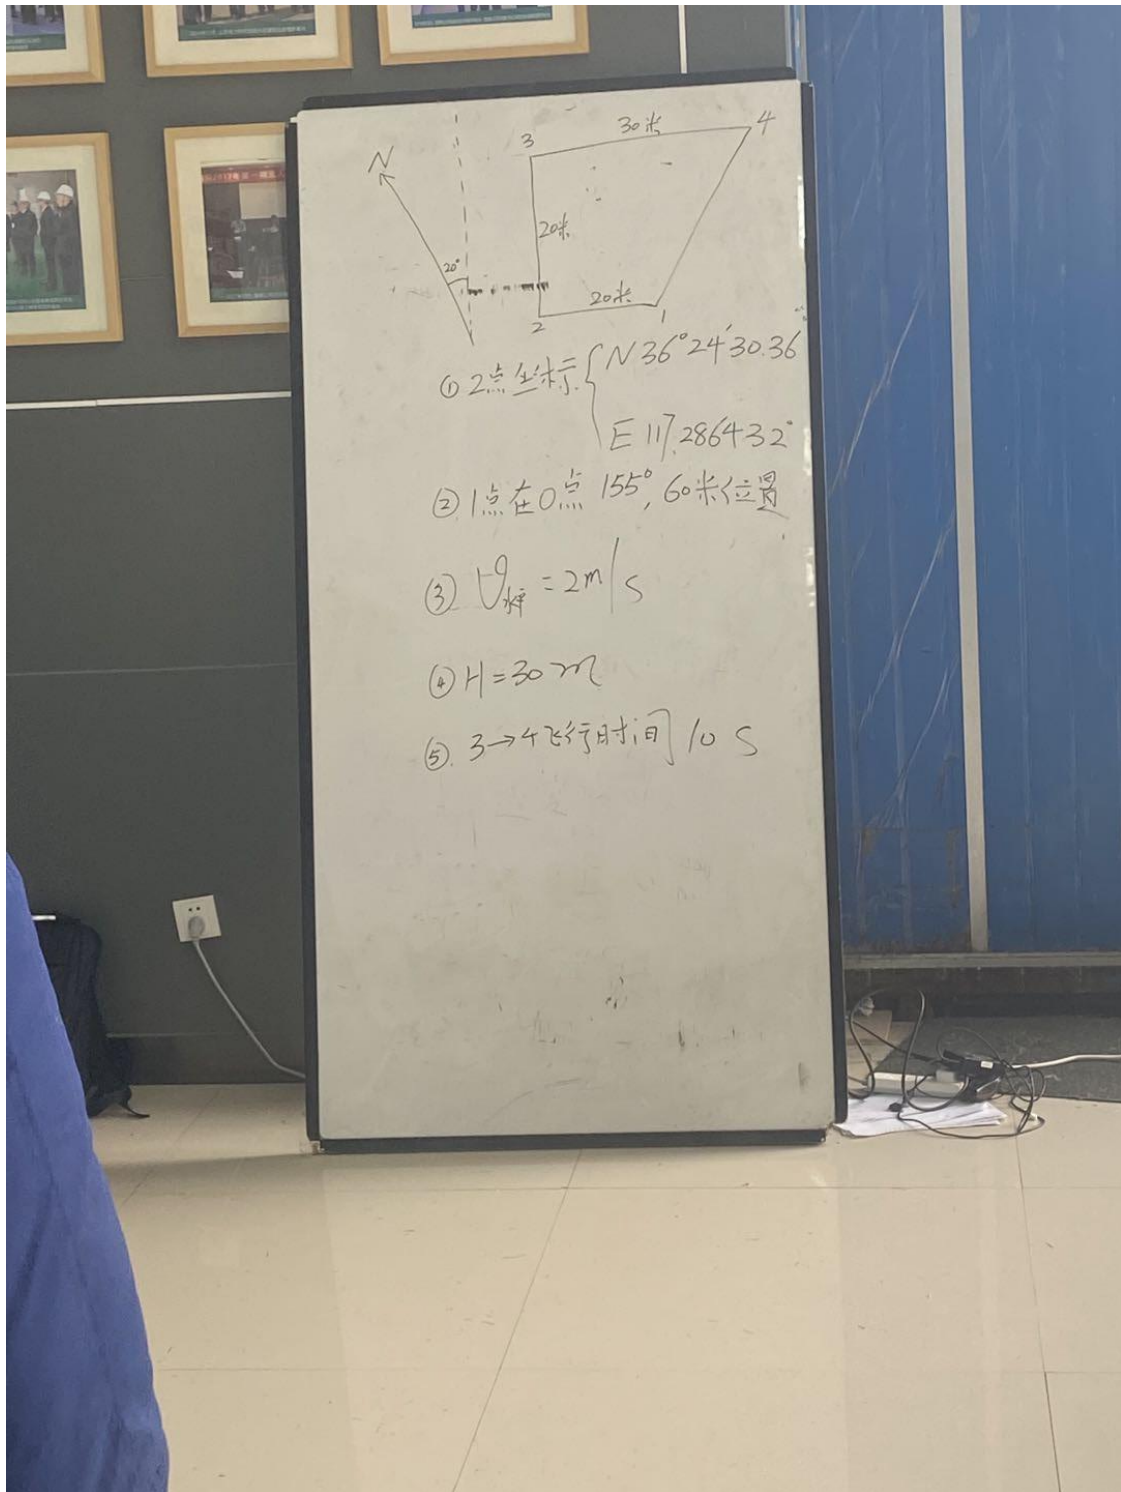 N
20°
3
30米
4
20米
20米
2
1
①2点坐标 { N36°24′30.36
E 117.286432°
②.1点在0点 155°, 60米位置
③. V水平 = 2m/s
④ H=30m
⑤. 3→4飞行时间 10 S